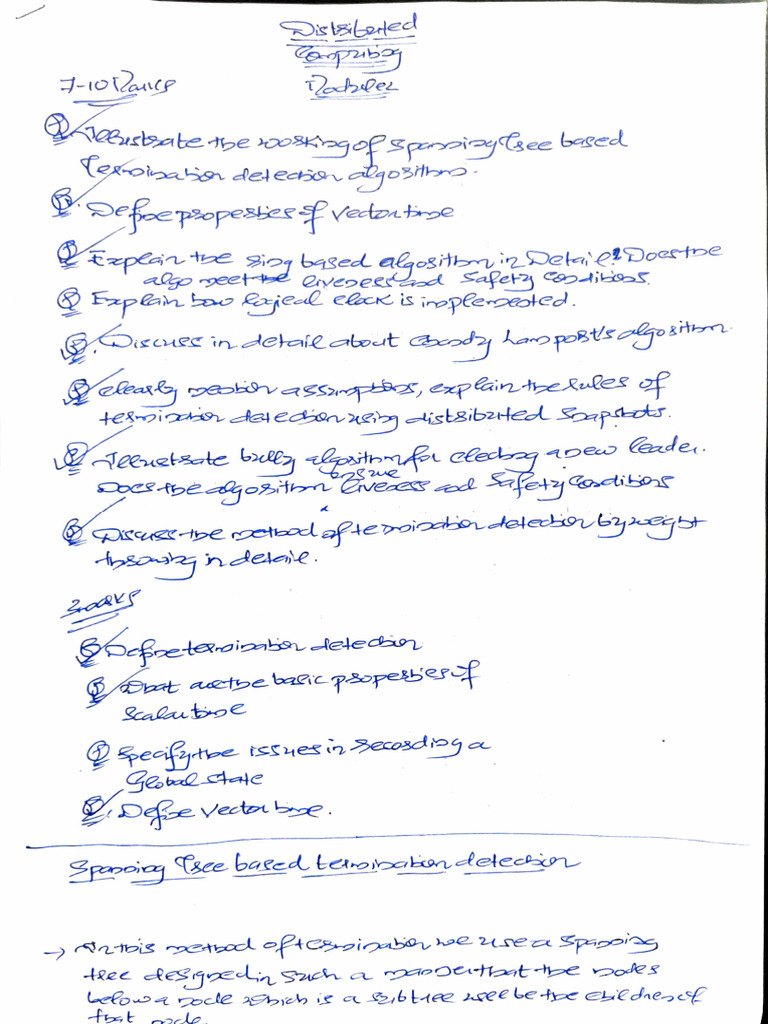 Distributed
Computing
7-10 Marks
Module 2
Illustrate the working of spanning Tree based
Termination detection algorithm.
Define properties of vector time
Explain the ring based algorithm in Detail? Does the
algo meet the liveness and safety conditions.
Explain how logical clock is implemented.
Discuss in detail about Chandy Lamport's algorithm.
Clearly mention assumptions, explain the rules of
termination detection using distributed snapshots.
Illustrate bully algorithm for electing a new leader.
ensure
Does the algorithm liveness and safety conditions
Discuss the method of termination detection by weight
throwing in detail.
3marks
Define termination detection
What are the basic properties of
Scalar time
Specify the issues in recording a
Global state
Define vector time.
Spanning Tree based termination detection
→ In this method of termination we use a spanning
tree designed in such a manner that the nodes
below a node which is a subtree will be the children of
that node.